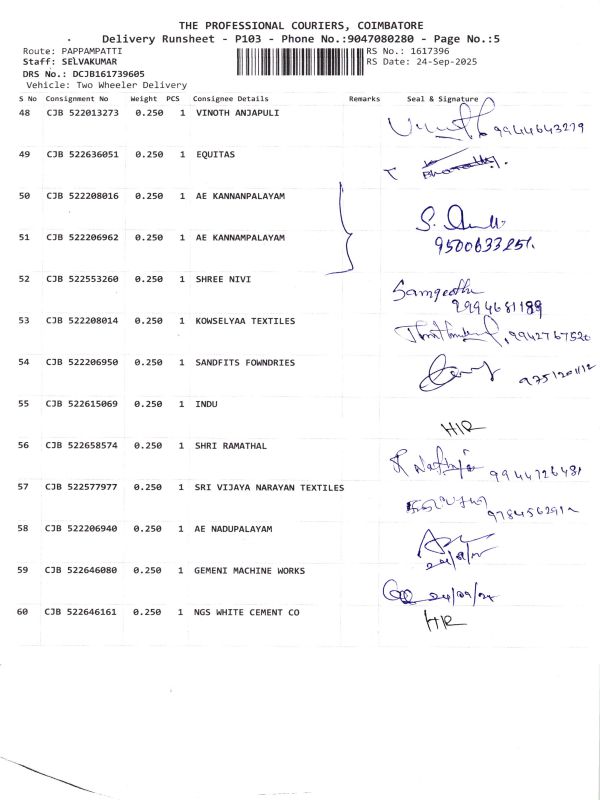 THE PROFESSIONAL COURIERS, COIMBATORE
Delivery Runsheet - P103 - Phone No.:9047080280 - Page No.:5
Route: PAPPAMPATTI RS No.: 1617396
Staff: SELVAKUMAR RS Date: 24-Sep-2025
DRS No.: DCJB161739605
Vehicle: Two Wheeler Delivery
S No Consignment No Weight PCS Consignee Details Remarks Seal & Signature
48 CJB 522013273 0.250 1 VINOTH ANJAPULI 9944643279
49 CJB 522636051 0.250 1 EQUITAS
50 CJB 522208016 0.250 1 AE KANNANPALAYAM
51 CJB 522206962 0.250 1 AE KANNAMPALAYAM
52 CJB 522553260 0.250 1 SHREE NIVI Sangeetha
2994681189
53 CJB 522208014 0.250 1 KOWSELYAA TEXTILES 9942767520
54 CJB 522206950 0.250 1 SANDFITS FOWNDRIES
55 CJB 522615069 0.250 1 INDU
H/R
56 CJB 522658574 0.250 1 SHRI RAMATHAL 9944726481
57 CJB 522577977 0.250 1 SRI VIJAYA NARAYAN TEXTILES
58 CJB 522206940 0.250 1 AE NADUPALAYAM
59 CJB 522646080 0.250 1 GEMENI MACHINE WORKS
60 CJB 522646161 0.250 1 NGS WHITE CEMENT CO H/R